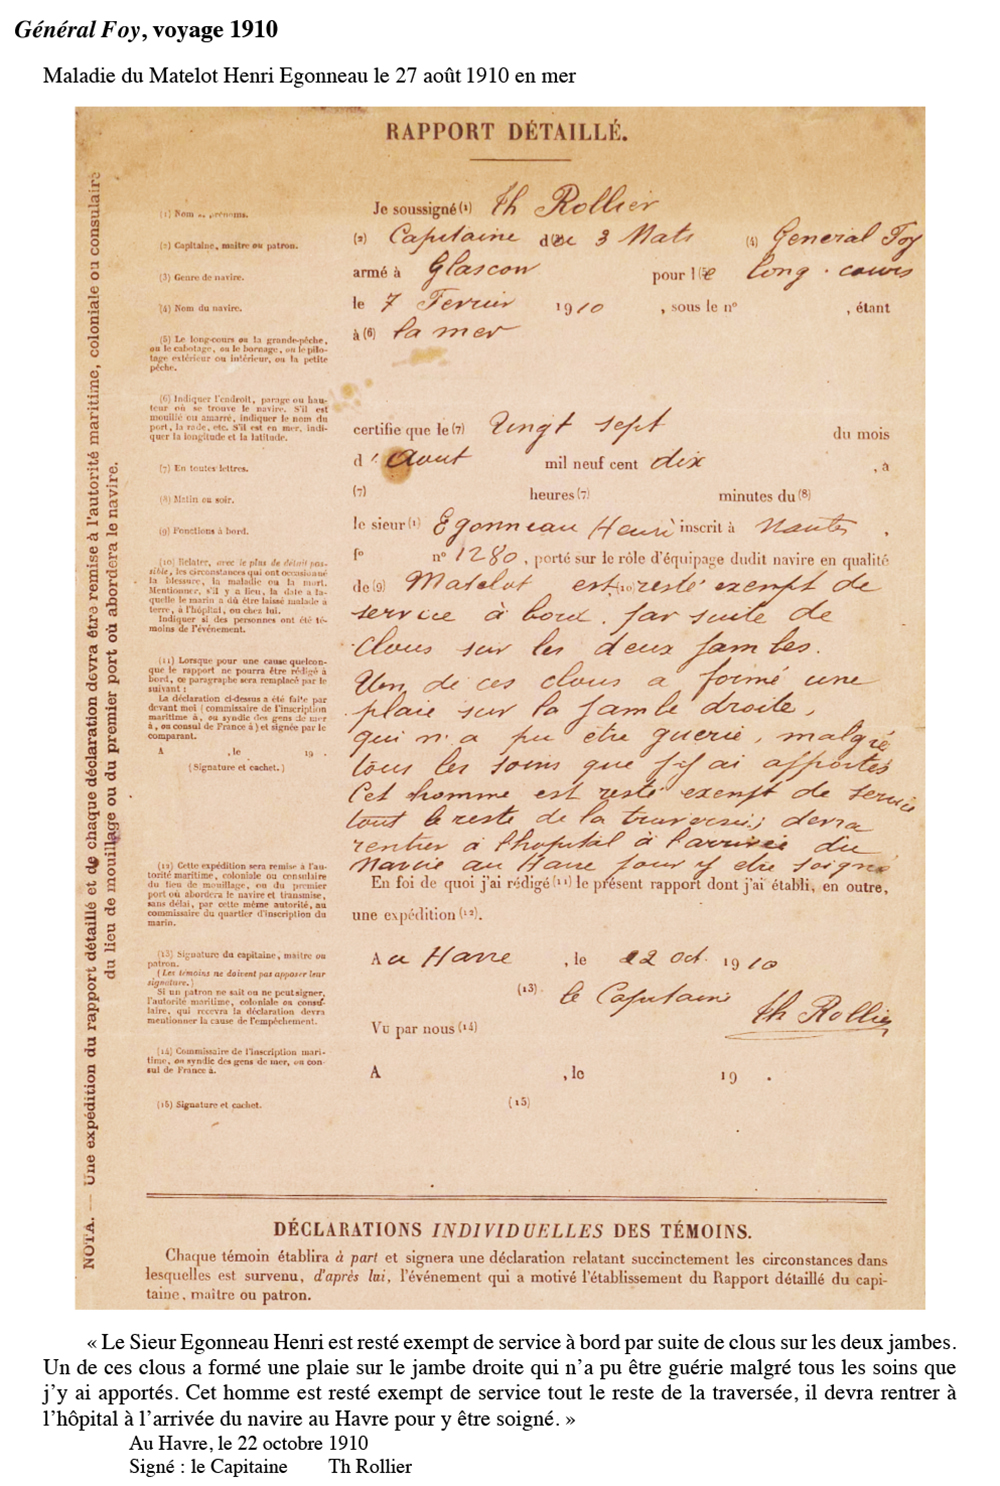 Général Foy, voyage 1910
Maladie du Matelot Henri Egonneau le 27 août 1910 en mer
RAPPORT DÉTAILLÉ.
Je soussigné (1) Th Rollier
(2) Capitaine de 3 Mats (4) General Foy
armé à Glascow pour le long-cours
le 7 Fevrier 1910, sous le n° , étant
à (6) la mer
certifie que le (7) Vingt sept du mois
d'Aout mil neuf cent dix , à
(7) heures (7) minutes du (8)
le sieur (1) Egonneau Henri inscrit à Nantes ,
f° n° 1280, porté sur le rôle d'équipage dudit navire en qualité
de (9) Matelot est (10) resté exempt de
service à bord par suite de
clous sur les deux jambes.
Un de ces clous a formé une
plaie sur la jambe droite,
qui n'a pu être guerie, malgré
tous les soins que j'y ai apportés
Cet homme est resté exempt de service
tout le reste de la traversée; devra
rentrer à l'hopital à l'arrivée du
Navire au Havre pour y etre soigné
En foi de quoi j'ai rédigé (11) le présent rapport dont j'ai établi, en outre,
une expédition (12).
Au Havre , le 22 oct. 1910
(13). le Capitaine Th Rollier
Vu par nous (14)
A , le 19 .
(15)
(1) Nom et prénoms.
(2) Capitaine, maître ou patron.
(3) Genre de navire.
(4) Nom du navire.
(5) Le long-cours ou la grande-pêche,
ou le cabotage, ou le bornage, ou le pilo-
tage extérieur ou intérieur, ou la petite
pêche.
(6) Indiquer l'endroit, parage ou hau-
teur où se trouve le navire. S'il est
mouillé ou amarré, indiquer le nom du
port, la rade, etc. S'il est en mer, indi-
quer la longitude et la latitude.
(7) En toutes lettres.
(8) Matin ou soir.
(9) Fonctions à bord.
(10) Relater, avec le plus de détail pos-
sible, les circonstances qui ont occasionné
la blessure, la maladie ou la mort.
Mentionner, s'il y a lieu, la date à la-
quelle le marin a dû être laissé malade à
terre, à l'hôpital, ou chez lui.
Indiquer si des personnes ont été té-
moins de l'événement.
(11) Lorsque pour une cause quelcon-
que le rapport ne pourra être rédigé à
bord, ce paragraphe sera remplacé par le
suivant :
La déclaration ci-dessus a été faite par
devant moi (commissaire de l'inscription
maritime à, ou syndic des gens de mer
à, ou consul de France à) et signée par le
comparant.
A , le 19 .
(Signature et cachet.)
(12) Cette expédition sera remise à l'au-
torité maritime, coloniale ou consulaire
du lieu de mouillage, ou du premier
port où abordera le navire et transmise,
sans délai, par cette même autorité, au
commissaire du quartier d'inscription du
marin.
(13) Signature du capitaine, maître ou
patron.
(Les témoins ne doivent pas apposer leur
signature.)
Si un patron ne sait ou ne peut signer,
l'autorité maritime, coloniale ou consu-
laire, qui recevra la déclaration devra
mentionner la cause de l'empêchement.
(14) Commissaire de l'inscription mari-
time, ou syndic des gens de mer, ou con-
sul de France à.
(15) Signature et cachet.
NOTA. — Une expédition du rapport détaillé et de chaque déclaration devra être remise à l'autorité maritime, coloniale ou consulaire
du lieu de mouillage ou du premier port où abordera le navire.
DÉCLARATIONS INDIVIDUELLES DES TÉMOINS.
Chaque témoin établira à part et signera une déclaration relatant succinctement les circonstances dans
lesquelles est survenu, d'après lui, l'événement qui a motivé l'établissement du Rapport détaillé du capi-
taine, maître ou patron.
« Le Sieur Egonneau Henri est resté exempt de service à bord par suite de clous sur les deux jambes.
Un de ces clous a formé une plaie sur le jambe droite qui n'a pu être guérie malgré tous les soins que
j'y ai apportés. Cet homme est resté exempt de service tout le reste de la traversée, il devra rentrer à
l'hôpital à l'arrivée du navire au Havre pour y être soigné. »
Au Havre, le 22 octobre 1910
Signé : le Capitaine Th Rollier